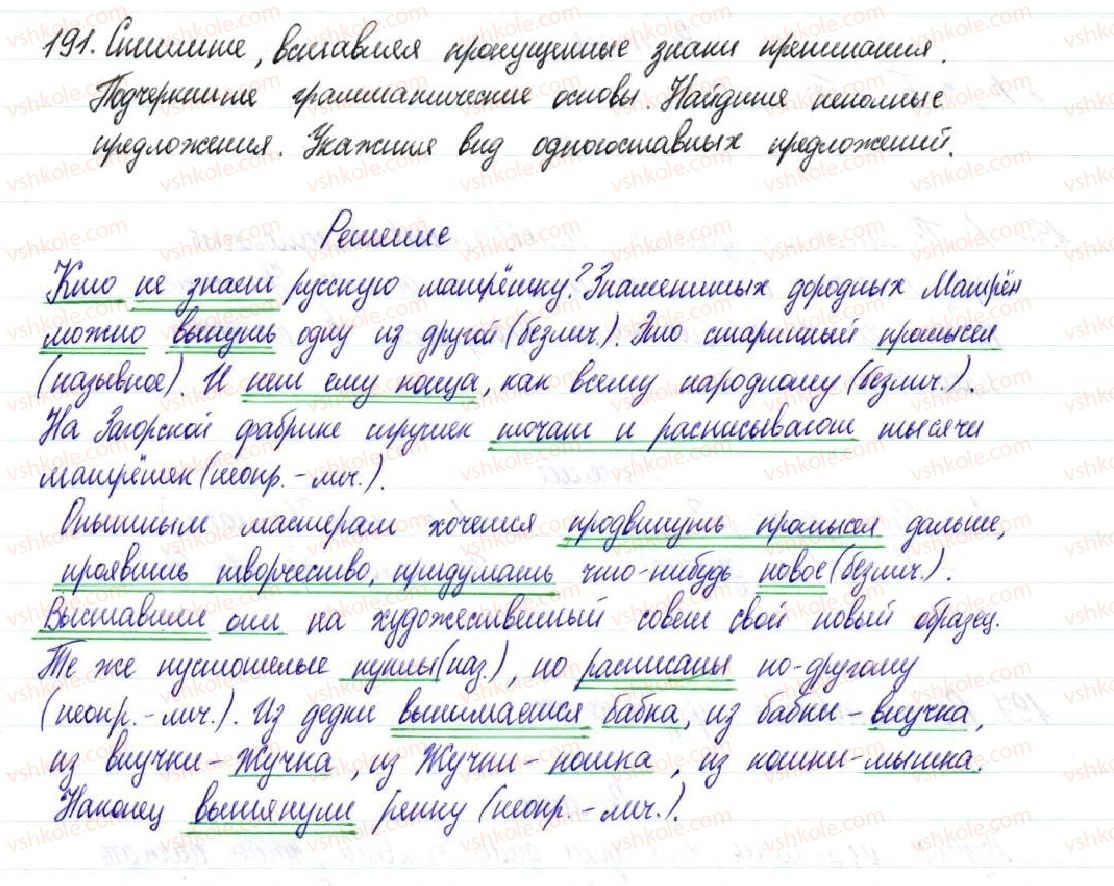 191. Спишите, вставляя пропущенные знаки препинания.
Подчеркните грамматические основы. Найдите неполные
предложения. Укажите вид односоставных предложений.
Решение
Кто не знает русскую матрёшку? Знаменитых дородных Матрён
можно вынуть одну из другой (безлич.). Это старинный промысел
(назывное). И нет ему конца, как всему народному (безлич.).
На Загорской фабрике игрушек точат и расписывают тысячи
матрёшек (неопр.-лич.).
Опытным мастерам хочется продвинуть промысел дальше,
проявить творчество, придумать что-нибудь новое (безлич.).
Выставили они на художественный совет свой новый образец.
Те же пустотелые куклы (наз.), но расписаны по-другому
(неопр.-лич.). Из дедки вынимается бабка, из бабки - внучка,
из внучки - Жучка, из Жучки - кошка, из кошки - мышка.
Наконец вытянули репку (неопр.-лич.).